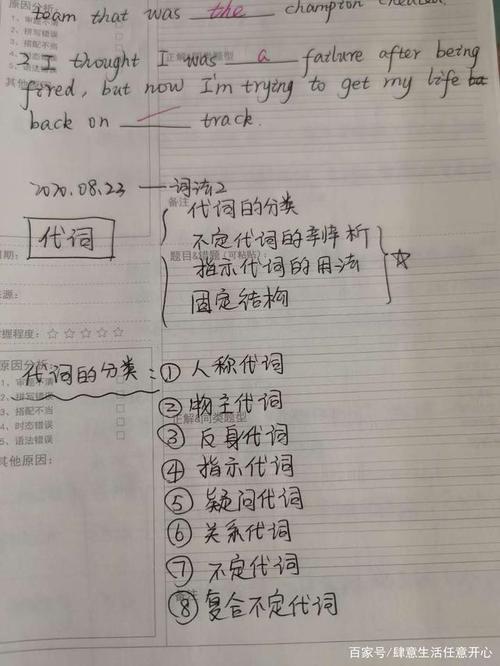 team that was the champion cheated.
原因分析:
1、审题不清
2、拼写错误
3、搭配不当
4、时态错误
5、语法错误
其他原因:
正解&同类题型
2. I thought I was a failure after being
fired, but now I'm trying to get my life
back on / track.
2020.08.23 — 词法2
备注
代词
代词的分类
不定代词的辨析
题目&错题(可粘贴)
指示代词的用法
固定结构
日期:
来源:
掌握程度:☆☆☆☆☆
原因分析:
代词的分类:① 人称代词
1、审题不清
2、拼写错误
3、搭配不当
4、时态错误
5、语法错误
其他原因:
② 物主代词
正解&同类题型
③ 反身代词
④ 指示代词
⑤ 疑问代词
⑥ 关系代词
⑦ 不定代词
备注
⑧ 复合不定代词
百家号/肆意生活任意开心